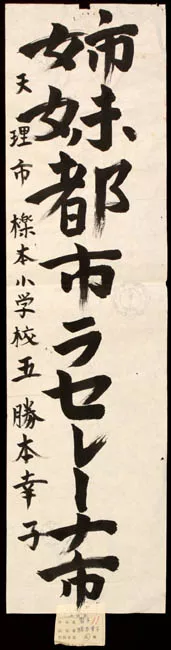 姉妹都市ラセレーナ市
天理市櫟本小学校五 勝本幸子